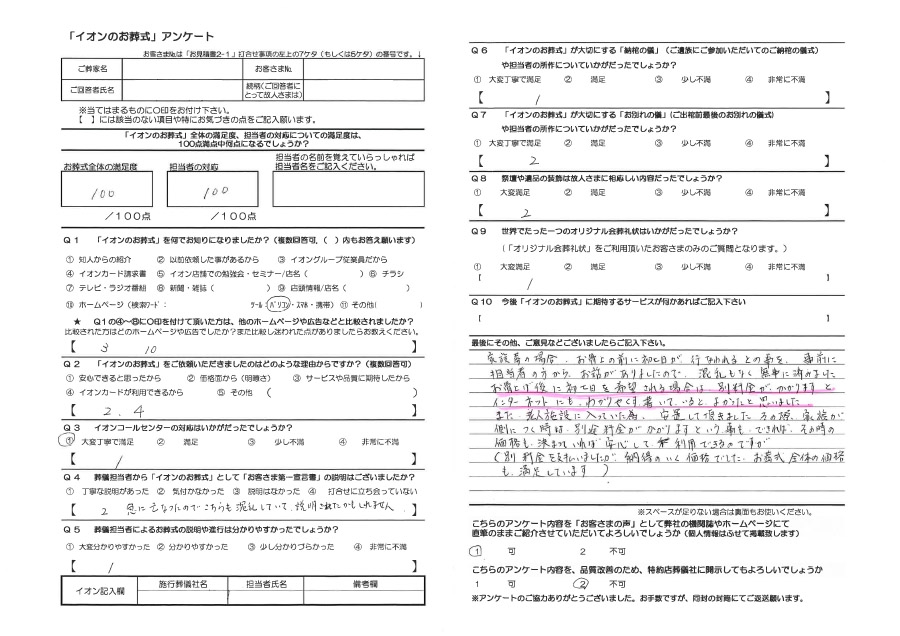 「イオンのお葬式」アンケート
お客さま№は「お見積書2-1」打合せ事項の左上の7ケタ（もしくは5ケタ）の番号です。↓
ご葬家名 お客さま№
ご回答者氏名 続柄（ご回答者にとって故人さまは）
※当てはまるものに○印をお付け下さい。
【　】には該当のない項目や特にお気づきの点をご記入願います。
「イオンのお葬式」全体の満足度、担当者の対応についての満足度は、
100点満点中何点になるでしょうか？
お葬式全体の満足度 担当者の対応 担当者の名前を覚えていらっしゃれば
担当者名をご記入ください。
100 100
／100点 ／100点
Q1 「イオンのお葬式」を何でお知りになりましたか？（複数回答可、（　）内もお答え願います）
① 知人からの紹介 ② 以前依頼した事があるから ③ イオングループ従業員だから
④ イオンカード請求書 ⑤ イオン店舗での勉強会・セミナー/店名（　） ⑥ チラシ
⑦ テレビ・ラジオ番組 ⑧ 新聞・雑誌（　） ⑨ 店頭情報/店名（　）
⑩ ホームページ（検索ワード：　ツール：パソコン・スマホ・携帯） ⑪ その他（　）
★ Q1の④～⑧に○印を付けて頂いた方は、他のホームページや広告などと比較されましたか？
比較された方はどのホームページや広告でしたか？また比較し迷われた点がありましたらお教えください。
【 3 10 】
Q2 「イオンのお葬式」をご依頼いただきましたのはどのような理由からですか？（複数回答可）
① 安心できると思ったから ② 価格面から（明瞭さ） ③ サービスや品質に期待したから
④ イオンカードが利用できるから ⑤ その他（　）
【 2. 4 】
Q3 イオンコールセンターの対応はいかがでしたでしょうか？
① 大変丁寧で満足 ② 満足 ③ 少し不満 ④ 非常に不満
【 1 】
Q4 葬儀担当者から「イオンのお葬式」として「お客さま第一宣言書」の説明はございましたか？
① 丁寧な説明があった ② 気付かなかった ③ 説明はなかった ④ 打合せに立ち会っていない
【 2 急に亡なったのでこちらも混乱していて、説明されたかもしれません 】
Q5 葬儀担当者によるお葬式の説明や進行は分かりやすかったでしょうか？
① 大変分かりやすかった ② 分かりやすかった ③ 少し分かりづらかった ④ 非常に不満
【 1 】
イオン記入欄 施行葬儀社名 担当者氏名 備考欄
Q6 「イオンのお葬式」が大切にする「納棺の儀」（ご遺族にご参加いただいてのご納棺の儀式）
や担当者の所作についていかがだったでしょうか？
① 大変丁寧で満足 ② 満足 ③ 少し不満 ④ 非常に不満
【 1 】
Q7 「イオンのお葬式」が大切にする「お別れの儀」（ご出棺前最後のお別れの儀式）
や担当者の所作についていかがだったでしょうか？
① 大変丁寧で満足 ② 満足 ③ 少し不満 ④ 非常に不満
【 2 】
Q8 祭壇や遺品の装飾は故人さまに相応しい内容だったでしょうか？
① 大変満足 ② 満足 ③ 少し不満 ④ 非常に不満
【 2 】
Q9 世界でたった一つのオリジナル会葬礼状はいかがだったでしょうか？
（「オリジナル会葬礼状」をご利用頂いたお客さまのみのご質問となります。）
① 大変満足 ② 満足 ③ 少し不満 ④ 非常に不満
［ 1 ］
Q10 今後「イオンのお葬式」に期待するサービスが何かあればご記入下さい
［　］
最後にその他、ご意見などございましたらご記入下さい。
家族葬の場合、お葬式の前に初七日が、行なわれるとの事を、事前に
担当者の方から、お話がありましたので、混乱もなく無事に済みました
お葬式後に初七日を希望される場合は、別料金がかかりますと
インターネットにも、わかりやすく書いていると、よかったと思いました
また、老人施設に入っていた為、安置して頂きました。その際、家族が
側につく時は、別途料金がかかりますという事も、できれば、その時の
価格も、決まっていれば安心して、利用できるのですが
（別料金を支払いましたが、納得のいく価格でした。お葬式全体の価格
も、満足しています）
※スペースが足りない場合は裏面もお使いください。
こちらのアンケート内容を「お客さまの声」として弊社の機関誌やホームページにて
直筆のままご紹介させていただいてよろしいでしょうか（個人情報はふせて掲載致します）
1 可 2 不可
こちらのアンケート内容を、品質改善のため、特約店葬儀社に開示してもよろしいでしょうか
1 可 2 不可
※アンケートのご協力ありがとうございました。お手数ですが、同封の封筒にてご返送願います。